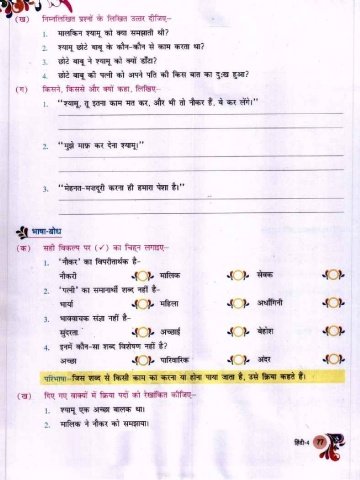 (ख) निम्नलिखित प्रश्नों के लिखित उत्तर दीजिए–
1. मालकिन श्यामू को क्या समझाती थी?
2. श्यामू छोटे बाबू के कौन-कौन से काम करता था?
3. छोटे बाबू ने श्यामू को क्यों डाँटा?
4. छोटे बाबू की पत्नी को अपने पति की किस बात का दुःख हुआ?
(ग) किसने, किससे और क्यों कहा, लिखिए–
1. "श्यामू, तू इतना काम मत कर, और भी तो नौकर हैं, वे कर लेंगे।"
2. "मुझे माफ़ कर देना श्यामू।"
3. "मेहनत-मजदूरी करना ही हमारा पेशा है।"
भाषा-बोध
(क) सही विकल्प पर (✓) का चिह्न लगाइए–
1. 'नौकर' का विपरीतार्थक है–
नौकरी मालिक सेवक
2. 'पत्नी' का समानार्थी शब्द नहीं है–
भार्या महिला अर्धांगिनी
3. भाववाचक संज्ञा नहीं है–
सुंदरता अच्छाई बेहोश
4. इनमें कौन-सा शब्द विशेषण नहीं है?
अच्छा पारिवारिक अंदर
परिभाषा–जिस शब्द से किसी काम का करना या होना पाया जाता है, उसे क्रिया कहते हैं।
(ख) दिए गए वाक्यों में क्रिया पदों को रेखांकित कीजिए–
1. श्यामू एक अच्छा बालक था।
2. मालिक ने नौकर को समझाया।
हिंदी-4 77